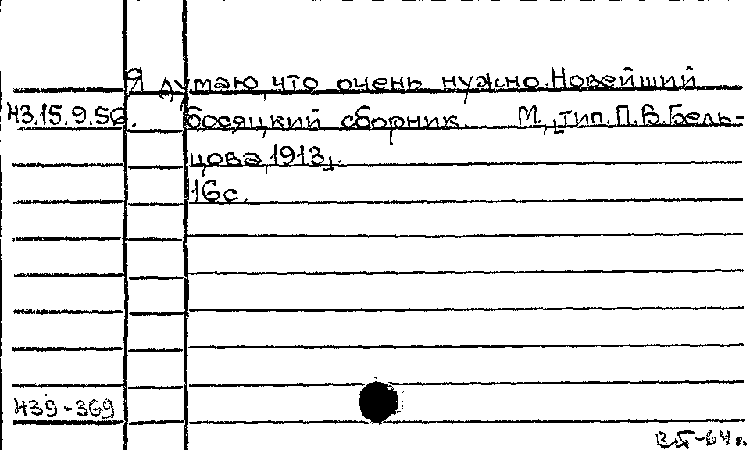 Я думаю, что очень нужно. Новейший
43.15.9.56. босяцкий сборник. М., тип. П.В. Бель-
цова, 1913.
16 с.
439-369